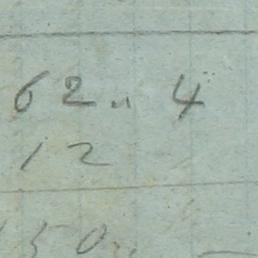 62 .. 4
12
150 ..